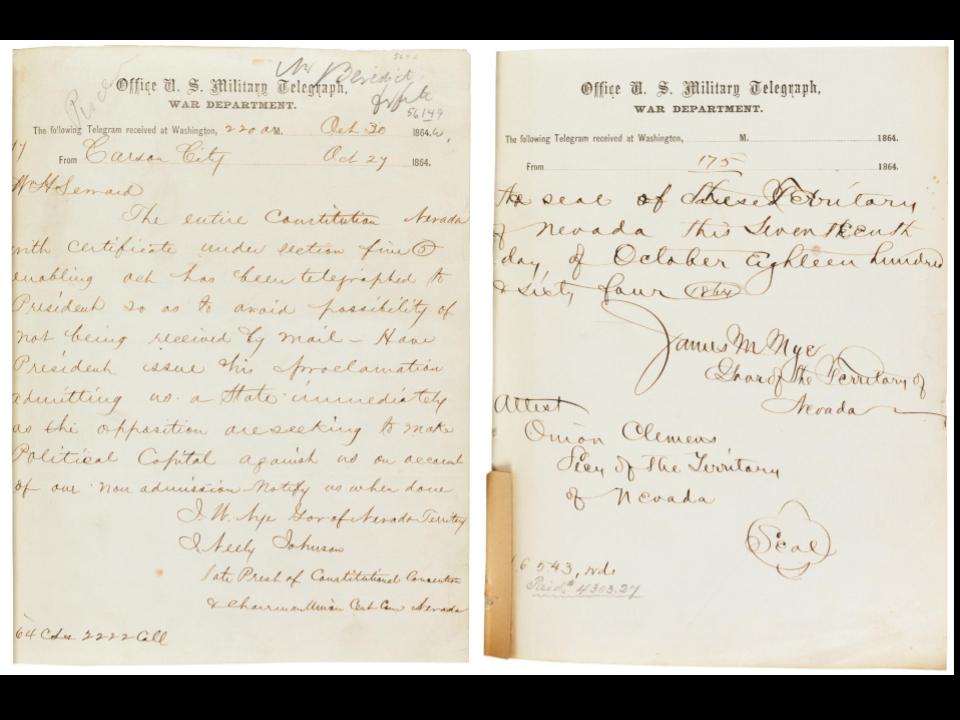 Mr Benedict
56149
Office U. S. Military Telegraph,
WAR DEPARTMENT.
The following Telegram received at Washington, 220 a M. Oct 30 1864.
From Carson City Oct 29 1864.
W H Seward
The entire Constitution Nevada
with certificate under section five 5
enabling act has been telegraphed to
President so as to avoid possibility of
not being received by mail - Have
President issue his proclamation
admitting us a State immediately
as the opposition are seeking to make
Political Capital against us on account
of our non admission Notify us when done
J. W. Nye Gov of Nevada Territory
J Neely Johnson
late Prest of Constitutional Convention
& Chairman Union Cent Com Nevada
64 2222 Coll
Office U. S. Military Telegraph,
WAR DEPARTMENT.
The following Telegram received at Washington, M. 1864.
From 175 1864.
the seal of these Territory
of Nevada this Seventeenth
day of October Eighteen hundred
& sixty four (1864)
James M Nye
Gov of the Territory of
Nevada
Attest
Orion Clemens
Secy of the Territory
of Nevada
Seal
16543, wds
Paid $4303.27